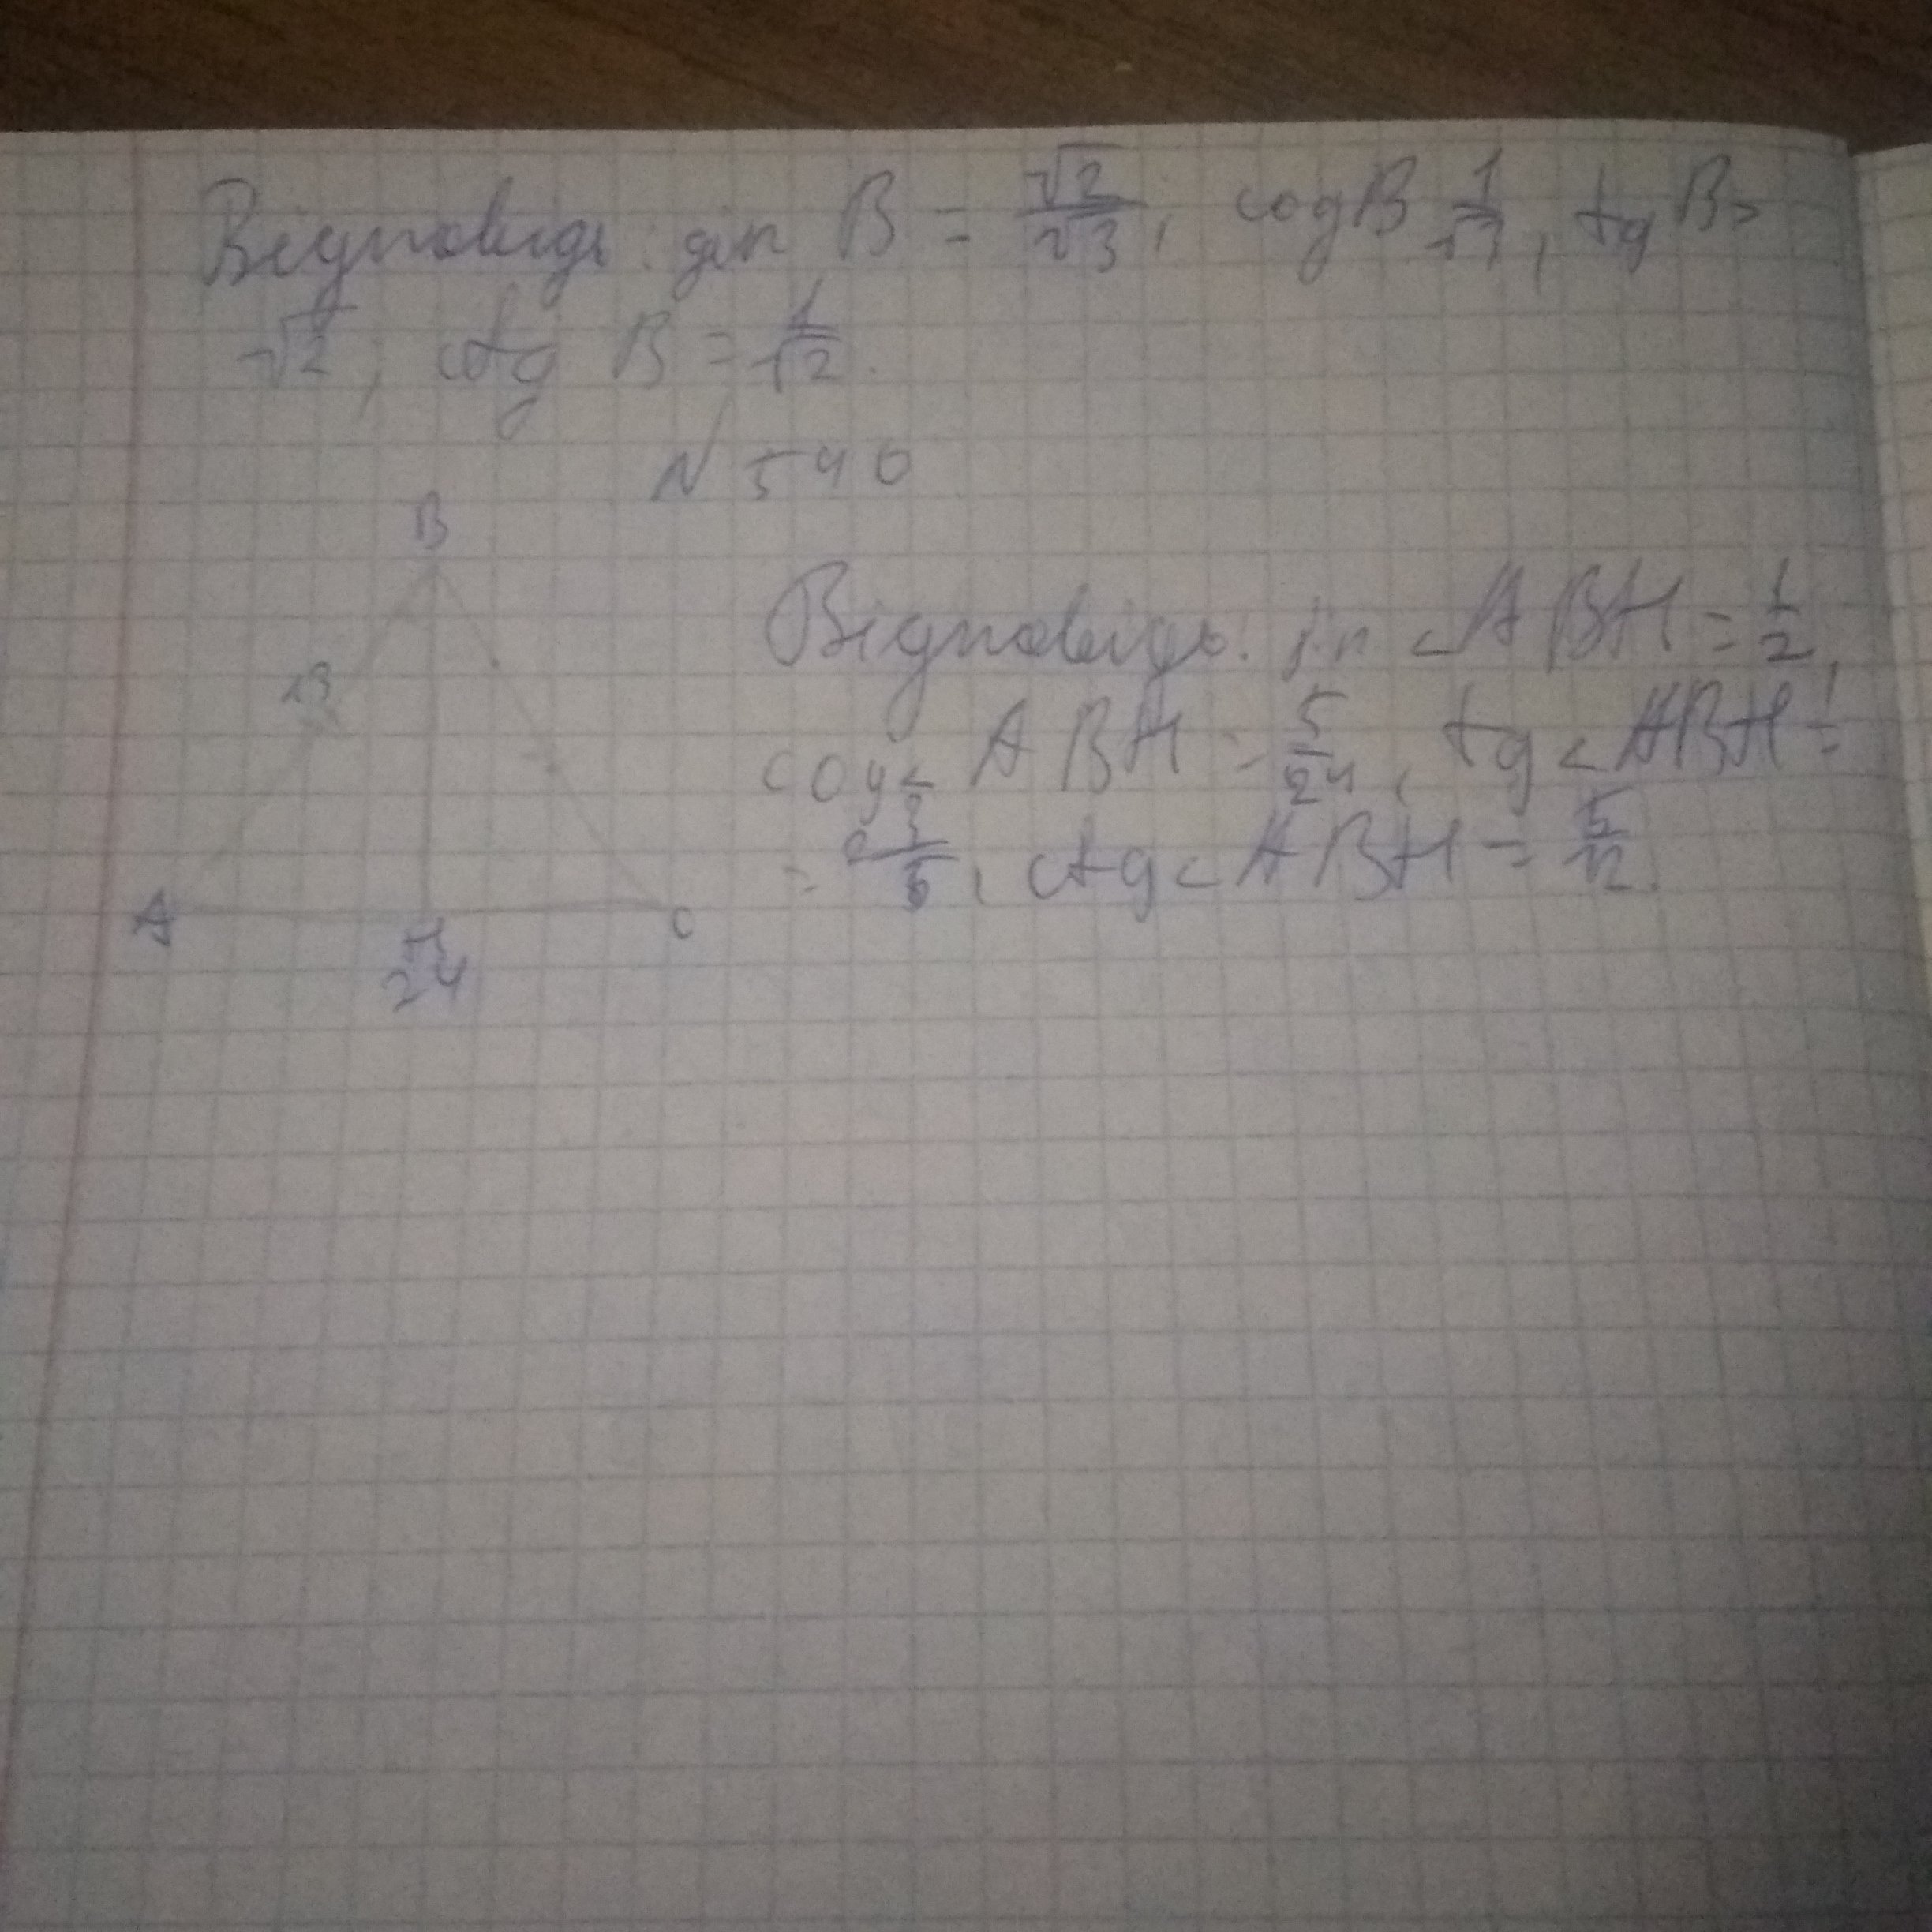 Відповідь: sin B = √2/√3, cos B 1/√3, tg B =
√2, ctg B = 1/√2.
N 540
B
13
Відповідь: sin < ABH = 1/2,
cos < ABH = 5/24, tg < ABH =
= 2 2/5, ctg < ABH = 5/12.
A H C
24